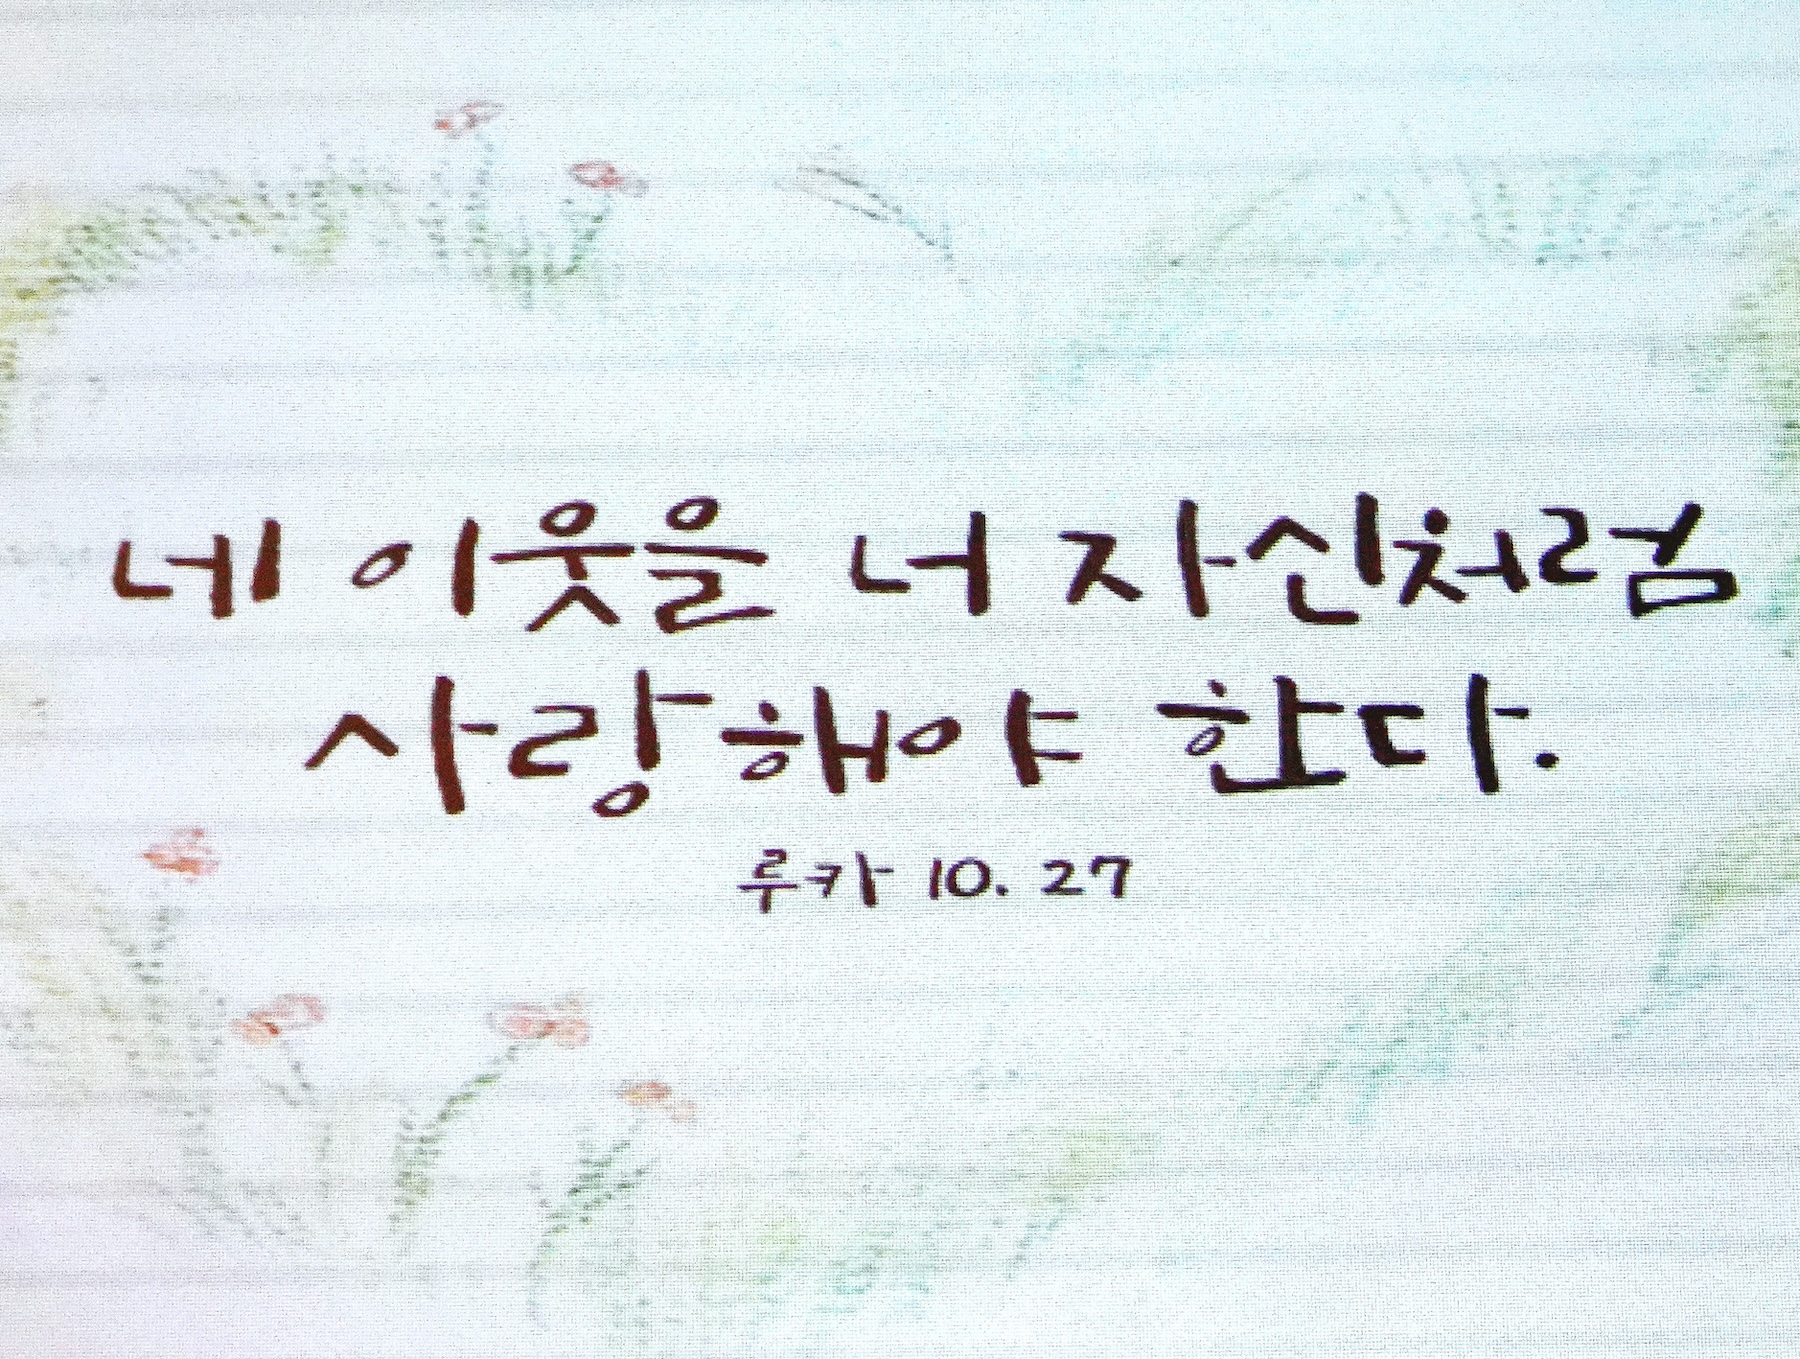 네 이웃을 너 자신처럼
사랑해야 한다.
루카 10. 27